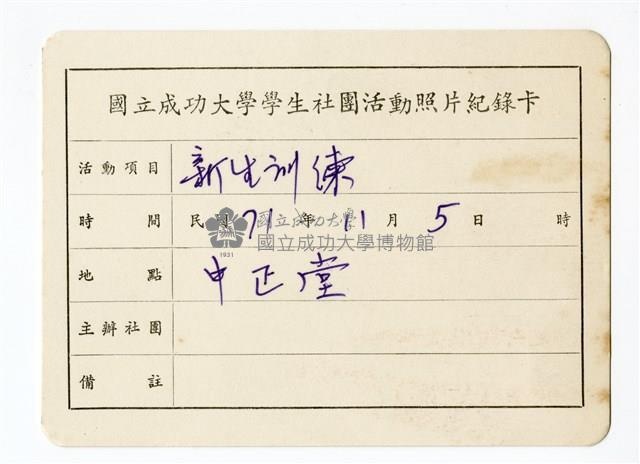 國立成功大學學生社團活動照片紀錄卡
活動項目 新生訓練
時間 民國71年11月5日 時
國立成功大學
國立成功大學博物館
1931
地點 中正堂
主辦社團
備註